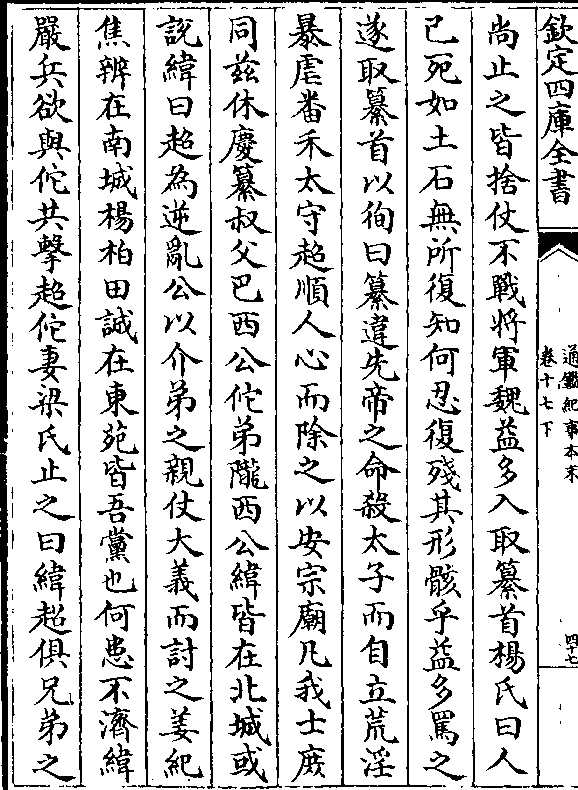 欽定四庫全書
通鑑紀事本末
卷十七下
四十七
尚止之皆捨仗不戰將軍魏益多入取纂首楊氏曰人
已死如土石無所復知何忍復殘其形骸乎益多罵之
遂取纂首以徇曰纂違先帝之命殺太子而自立荒淫
暴虐番禾太守超順人心而除之以安宗廟凡我士庶
同兹休慶纂叔父巴西公佗弟隴西公緯皆在北城或
說緯曰超為逆亂公以介弟之親仗大義而討之姜紀
焦辨在南城楊柏田誠在東苑皆吾黨也何患不濟緯
嚴兵欲與佗共擊超佗妻梁氏止之曰緯超俱兄弟之